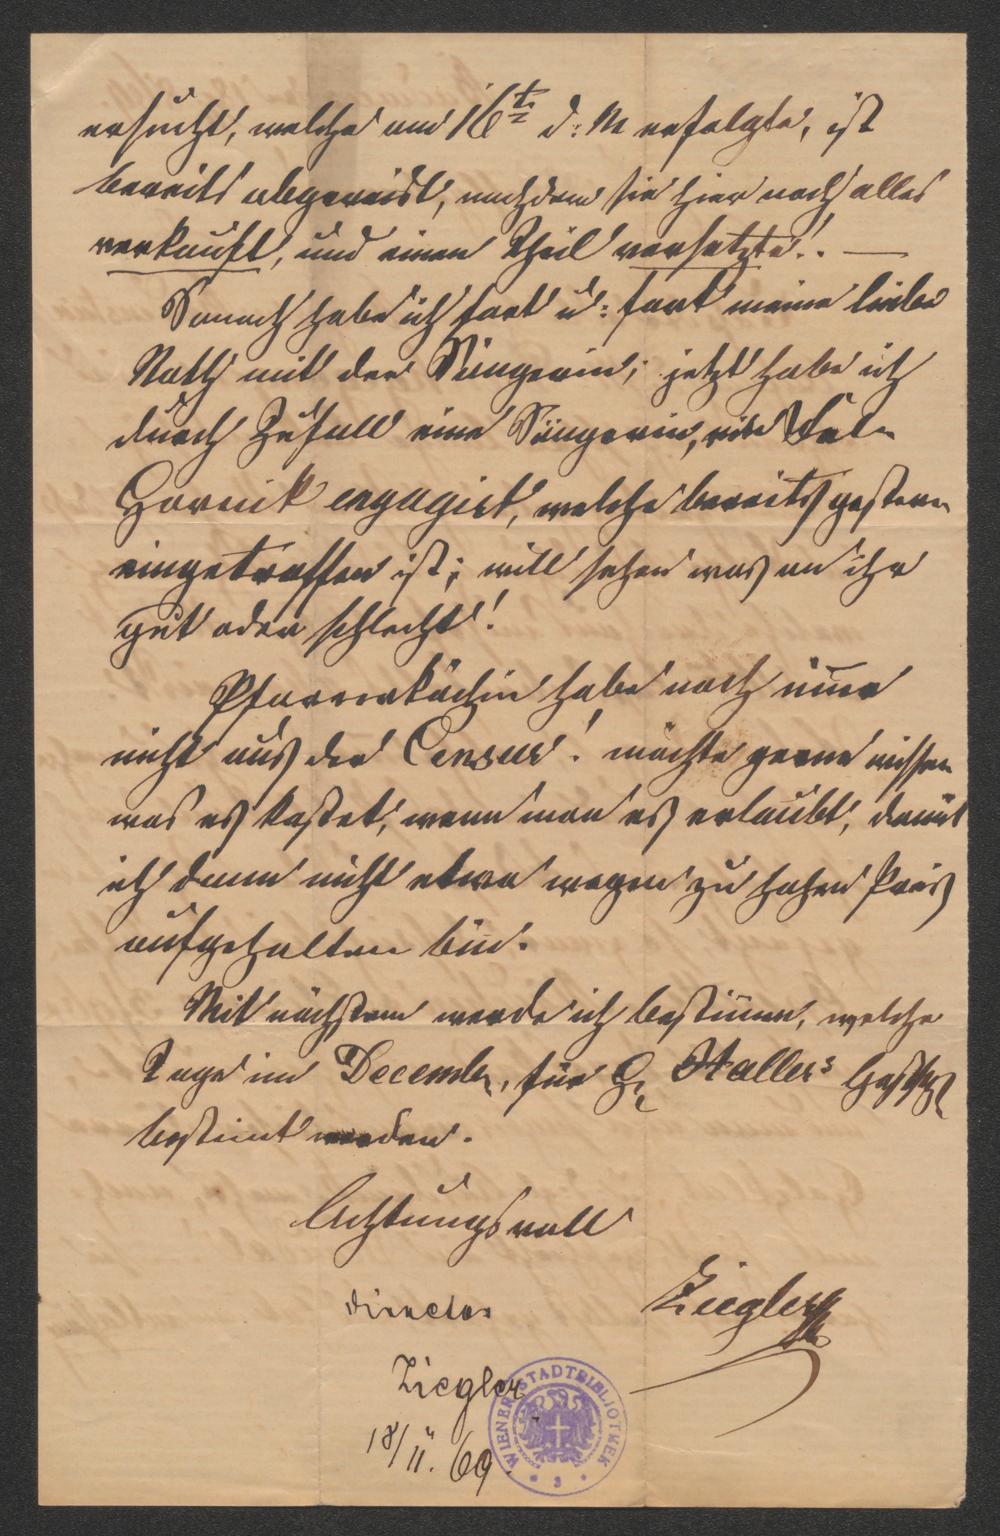 ersucht, welche am 16t d: M erfolgte, ist
bereits abgereist, nachdem sie hier noch alles
verkauft, und einen Theil versetzte!. —
Sonach habe ich fort u: fort meine liebe
Noth mit der Sängerin; jetzt habe ich
durch Zufall eine Sängerin, eine
Hornik engagirt, welche bereits gestern
eingetroffen ist; will sehen was an ihr
gut oder schlecht!
Pfarrersköchin habe noch immer
nicht aus der Censur! möchte gerne wissen
was es kostet, wenn man es erlaubt, damit
ich dann nicht etwa wegen zu hohen Preis
aufgehalten bin.
Mit nächstem werde ich bestimmen, welche
Tage im December, für H. Hallers Gastspl
bestimt werden.
Achtungsvoll
Ziegler
Director
Ziegler
18/11. 69.
WIENER STADTBIBLIOTHEK